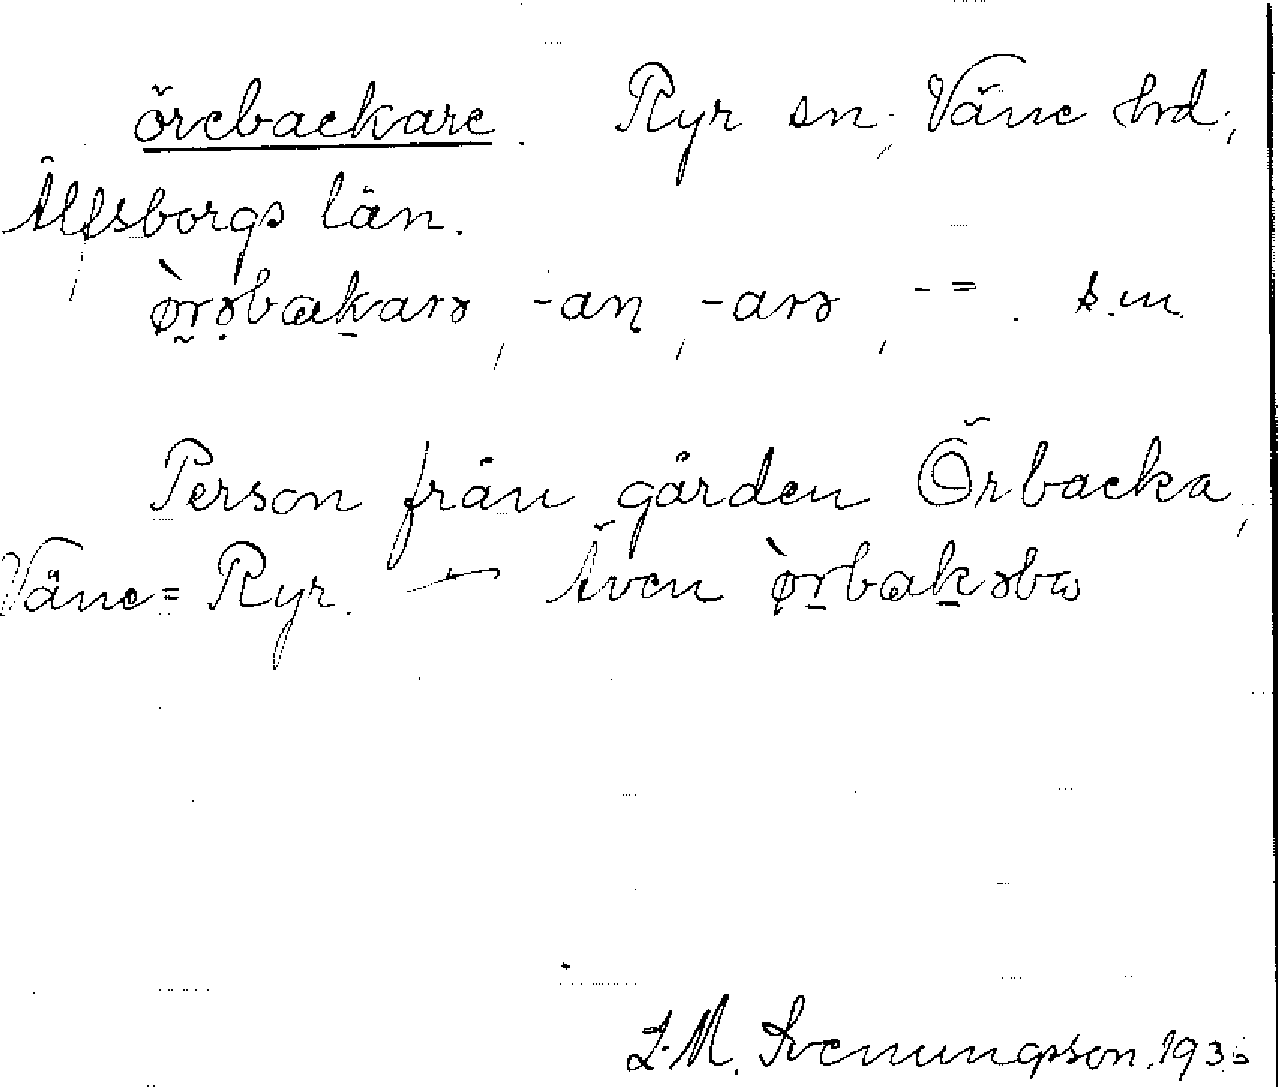 örebackare. Ryr sn, Väne hrd.,
Älfsborgs län.
ø̀rəbakarə, -aṇ, -arə, -=. s.m.
Person från gården Örbacka,
Väne-Ryr. — Även ø̀rbakəbω
J.M. Svenungsson.